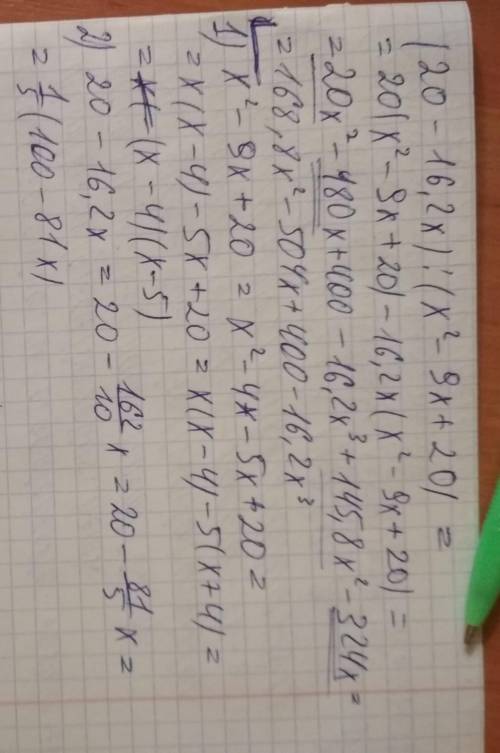 (20 - 16,2x) : (x² - 9x + 20) =
= 20(x² - 9x + 20) - 16,2x(x² - 9x + 20) =
= 20x² - 180x + 400 - 16,2x³ + 145,8x² - 324x =
= 168,8x² - 504x + 400 - 16,2x³
1) x² - 9x + 20 = x² - 4x - 5x + 20 =
= x(x - 4) - 5x + 20 = x(x - 4) - 5(x + 4) =
= (x - 4)(x - 5)
2) 20 - 16,2x = 20 - 162/10 x = 20 - 81/5 x =
= 1/5 (100 - 81x)